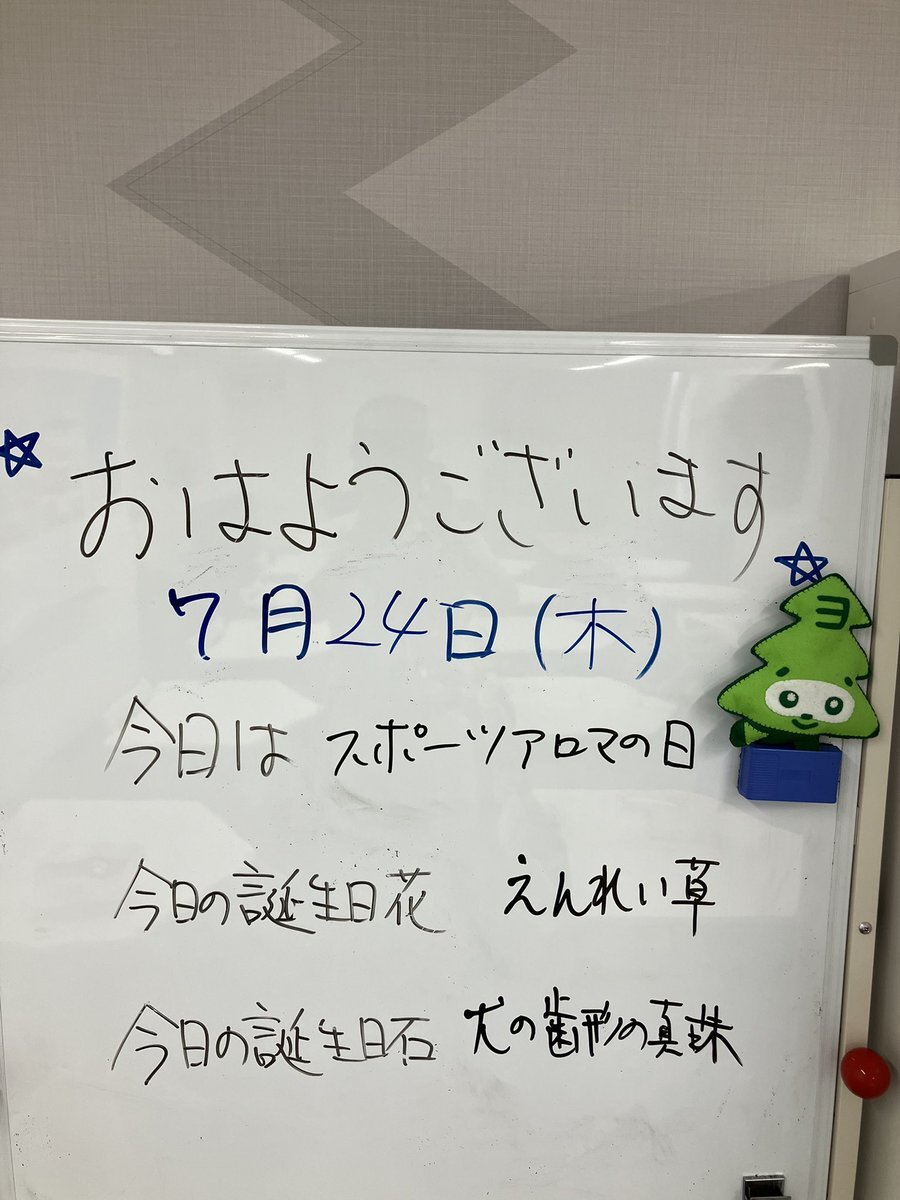 おはようございます
7月24日(木)
ヨ
今日は スポーツアロマの日
今日の誕生日花 えんれい草
今日の誕生日石 犬の歯形の真珠